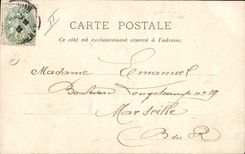 CARTE POSTALE
Ce côté est exclusivement réservé à l'adresse.
Madame Emanuel
Boulevard Longchamp nº 19
Marseille
B du R